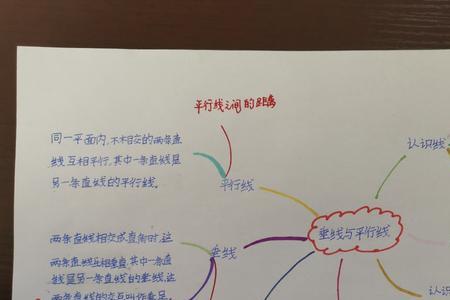 平行线之间的距离
同一平面内,不相交的两条直
线互相平行,其中一条直线是
另一条直线的平行线。
平行线
认识线
垂线与平行线
垂线
两条直线相交成直角时,这
两条直线互相垂直,其中一条
直线是另一条直线的垂线,这
两条直线的交叉叫作垂足。